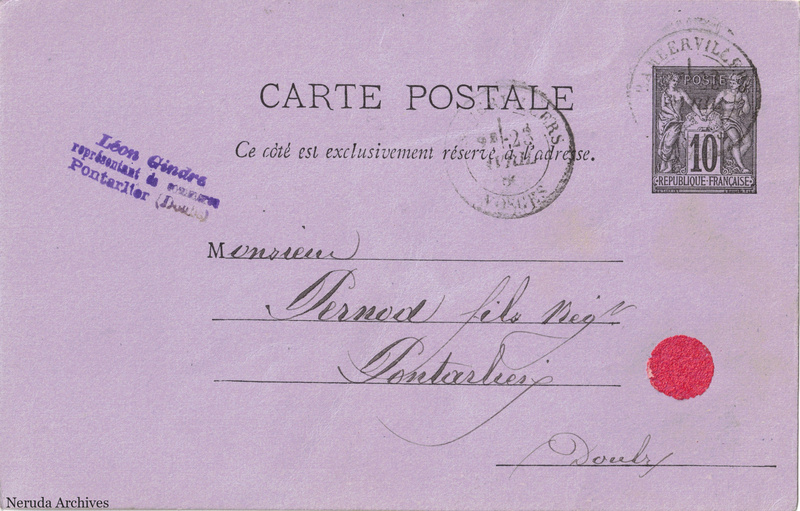 CARTE POSTALE
Ce côté est exclusivement réservé à l'adresse.
POSTE
10
REPUBLIQUE FRANÇAISE
Léon Gindre
représentant de commerce
Pontarlier (Doubs)
AVRIL
VOSGES
Monsieur
Pernod fils Négt
Pontarlier
Doubs
Neruda Archives